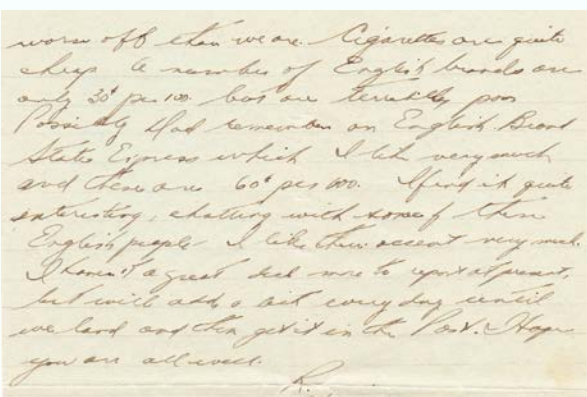 worse off than we are. Cigarettes are quite
cheap a number of English brands are
only 30¢ per 100. but are terribly poor
Possibly Dad remembers an English Brand
State Express which I like very much
and these are 60¢ per 100. I find it quite
interesting, chatting with some of these
English people. I like their accent very much.
I haven't a great deal more to report at present,
but will add a bit every day until
we land and then get it in the Post. I hope
you are all well.
R.